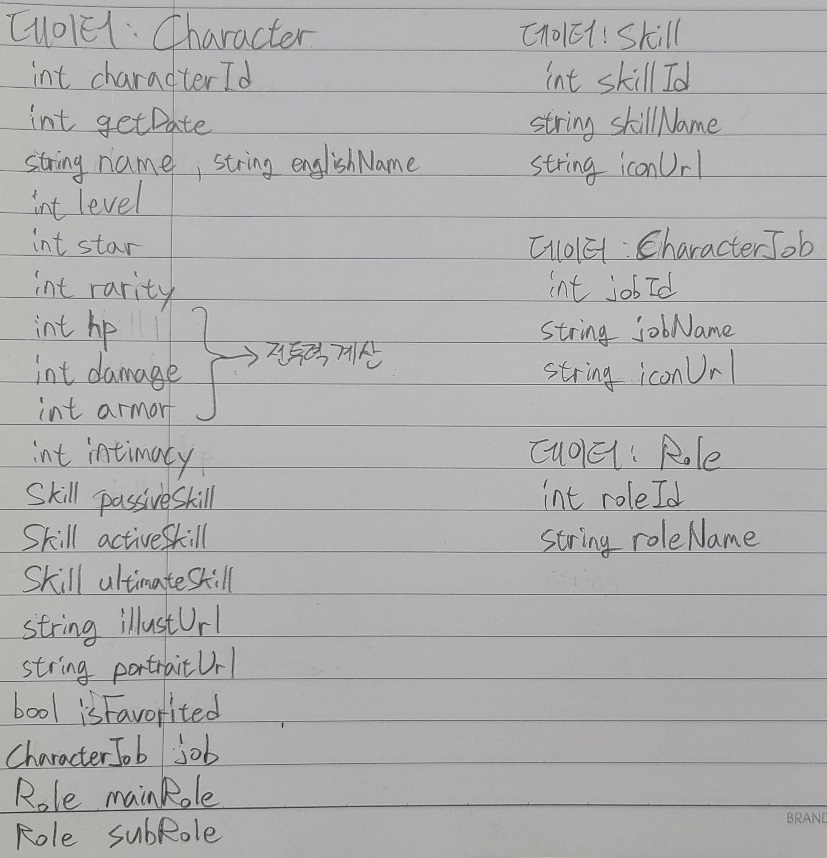 데이터: Character
int characterId
int getDate
string name, string englishName
int level
int star
int rarity
int hp
int damage
int armor
→ 전투력 계산
int intimacy
Skill passiveSkill
Skill activeSkill
Skill ultimateSkill
string illustUrl
string portraitUrl
bool isFavorited
CharacterJob job
Role mainRole
Role subRole
데이터: Skill
int skillId
string skillName
string iconUrl
데이터: CharacterJob
int jobId
string jobName
string iconUrl
데이터: Role
int roleId
string roleName